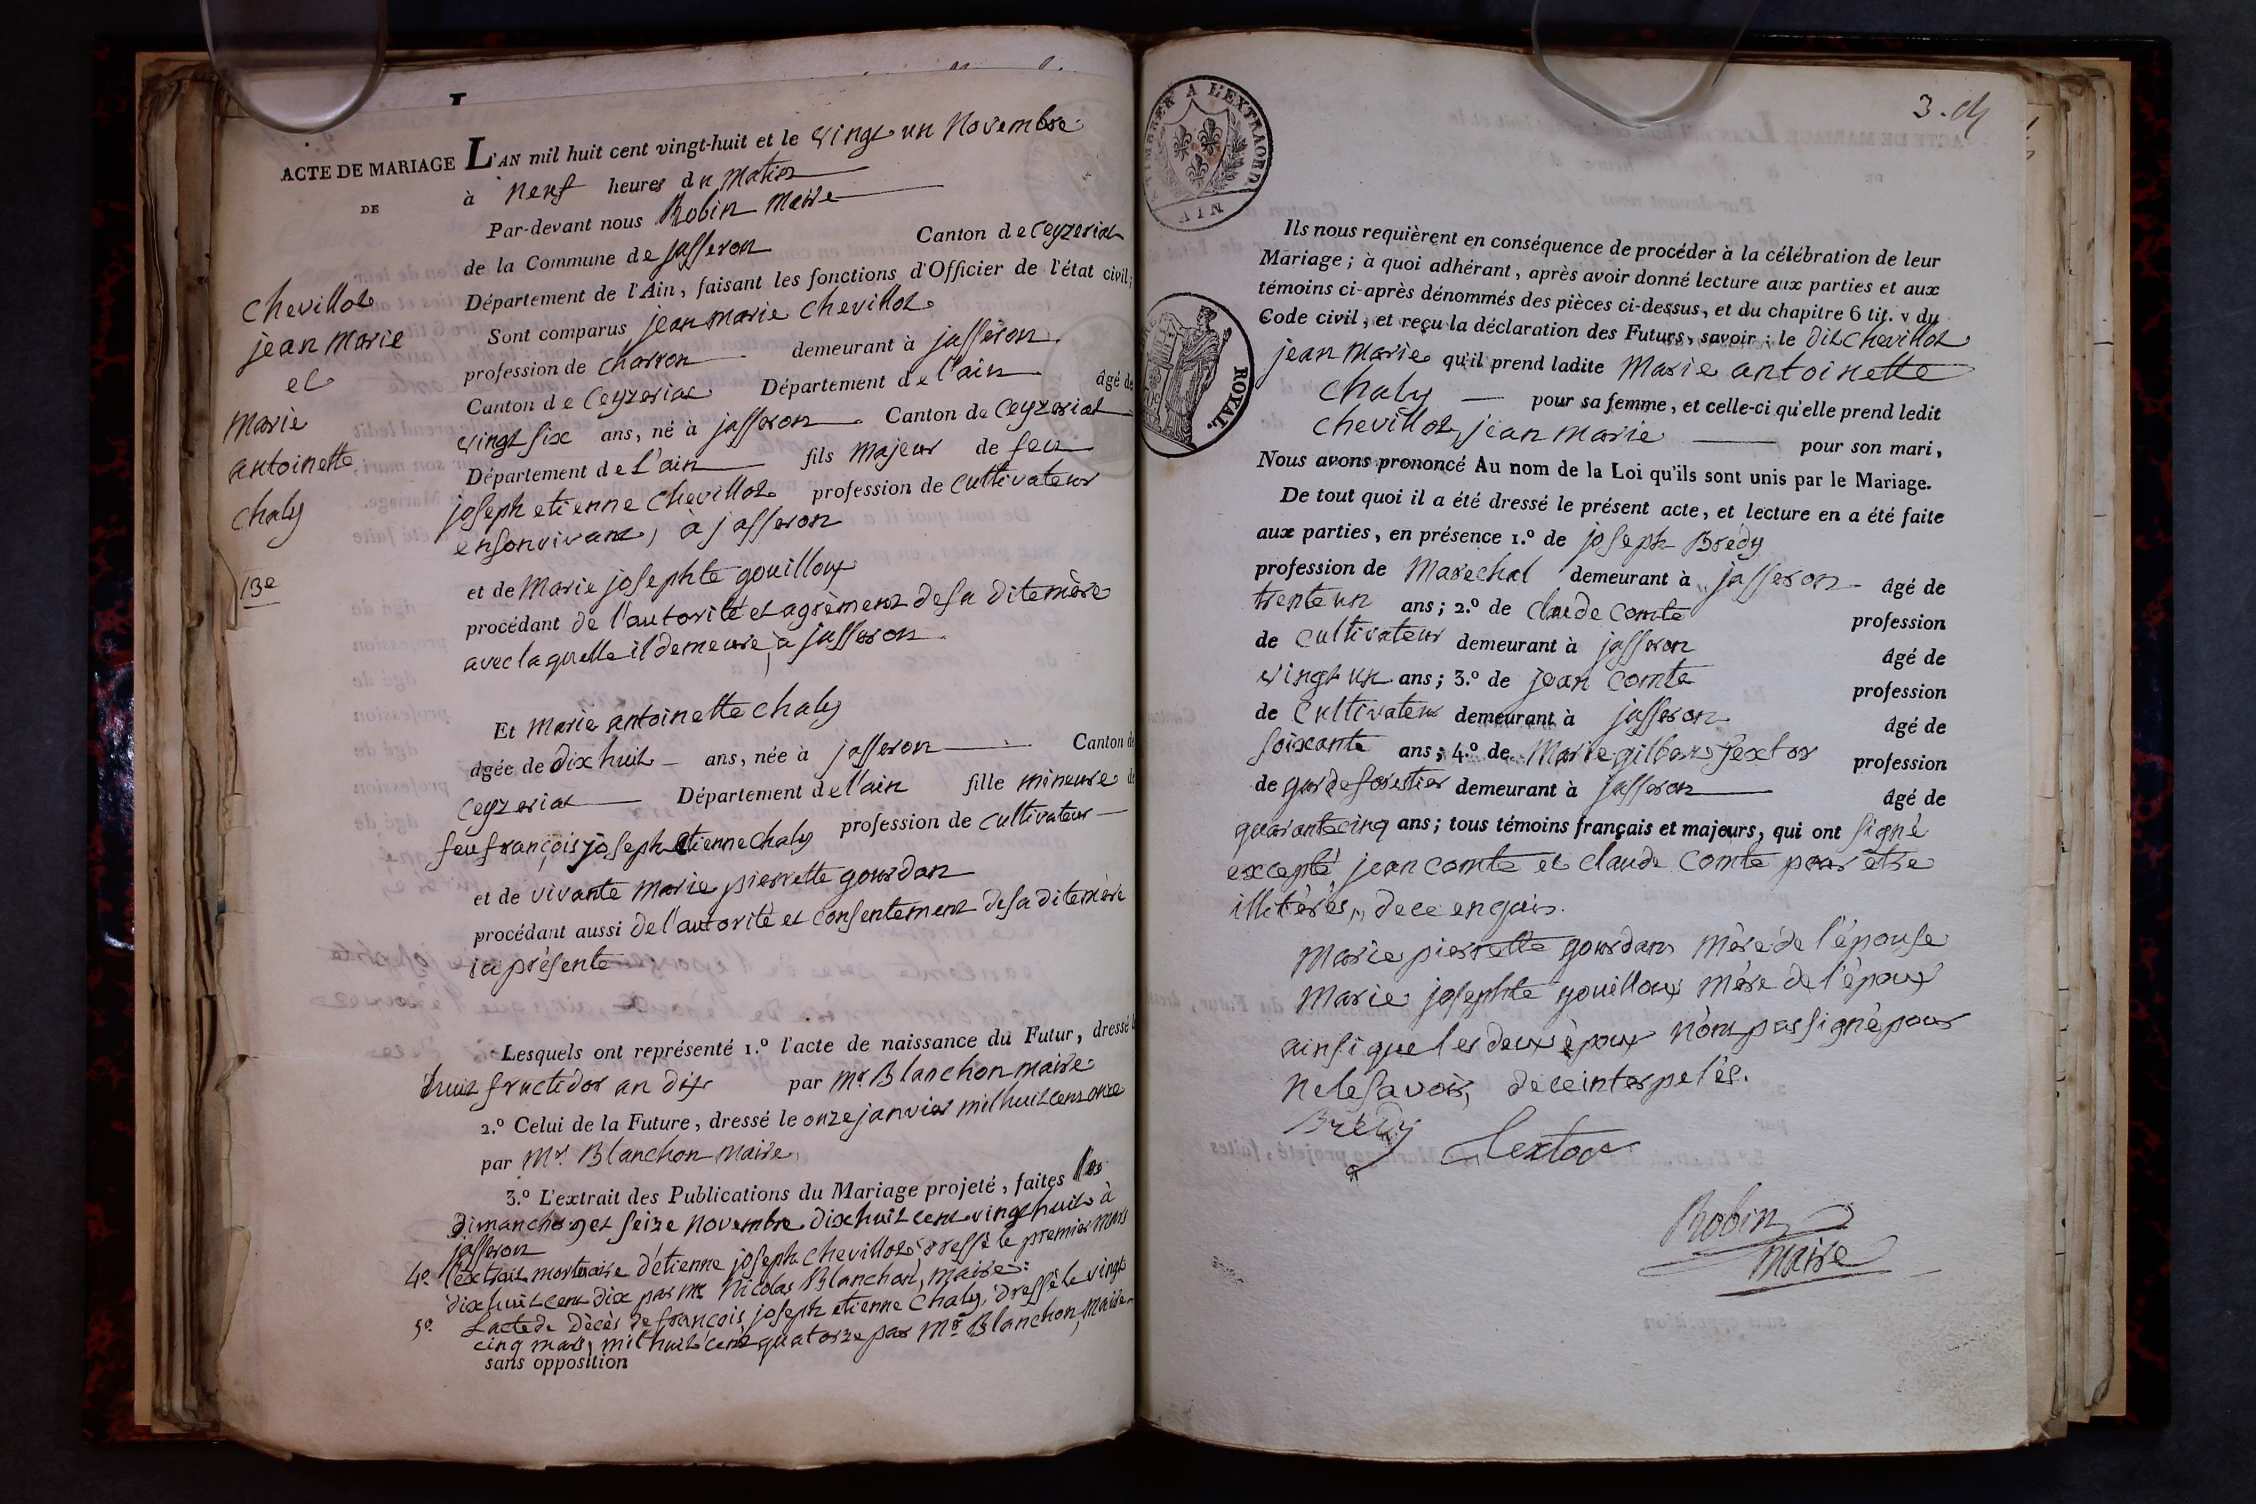 ACTE DE MARIAGE
DE
Chevillot
jean Marie
et
Marie
antoinette
Chaly
13e
L'AN mil huit cent vingt-huit et le vingt un Novembre
à neuf heures du Matin
Par-devant nous Robin Maire
de la Commune de jasseron Canton de Ceyzeriat
Département de l'Ain, faisant les fonctions d'Officier de l'état civil;
Sont comparus jean marie Chevillot
profession de charron demeurant à jasseron
Canton de Ceyzeriat Département de l'ain âgé de
vingt six ans, né à jasseron Canton de Ceyzeriat
Département de L'ain fils majeur de feu
joseph etienne Chevillot profession de Cultivateur
en son vivant, à jasseron
et de Marie josephte gouilloux
procédant de l'autorité et agrément de sa dite mère
avec laquelle il demeure, à jasseron
Et marie antoinette chaly
âgée de dix huit ans, née à jasseron Canton de
Ceyzeriat Département de l'ain fille mineure de
feu françois joseph etienne chaly profession de Cultivateur
et de vivante marie pierrette gourdan
procédant aussi de l'autorité et Consentement de sa dite mère
ici présente
Lesquels ont représenté 1.º l'acte de naissance du Futur, dressé le
huit fructidor an dix par Mr Blanchon maire
2.º Celui de la Future, dressé le onze janvier mil huit cent onze
par Mr. Blanchon Maire,
3.º L'extrait des Publications du Mariage projeté, faites les
Dimanche 9 et seize novembre dix huit cent vingt huit à
jasseron
4º l'extrait mortuaire d'étienne joseph chevillot dressé le premier Mars
dix huit cent dix par Mr Nicolas Blanchon, maire:
5º L'acte de Décès de françois joseph etienne Chaly, dressé le vingt
cinq mars, mil huit cent quatorze par Mr Blanchon, Maire
sans opposition
3. 
TIMBRER A L'EXTRAORD
AIN
ROYAL.
Ils nous requièrent en conséquence de procéder à la célébration de leur
Mariage; à quoi adhérant, après avoir donné lecture aux parties et aux
témoins ci-après dénommés des pièces ci-dessus, et du chapitre 6 tit. v du
Code civil, et reçu la déclaration des Futurs, savoir: le dit chevillot
jean Marie qu'il prend ladite Marie antoinette
Chaly pour sa femme, et celle-ci qu'elle prend ledit
Chevillot, jean marie pour son mari,
Nous avons prononcé Au nom de la Loi qu'ils sont unis par le Mariage.
De tout quoi il a été dressé le présent acte, et lecture en a été faite
aux parties, en présence 1.º de joseph Bredy
profession de Marechal demeurant à jasseron âgé de
trente un ans; 2.º de Claude Comte profession
de Cultivateur demeurant à jasseron âgé de
vingt un ans; 3.º de jean Comte profession
de Cultivateur demeurant à jasseron âgé de
soixante ans; 4.º de Marie gilbert Textor profession
de garde forestier demeurant à jasseron âgé de
quarante cinq ans; tous témoins français et majeurs, qui ont signé
excepté jean comte et claude Comte pour être
illitérés, de ce enquis.
Marie pierrette gourdan mère de l'épouse
Marie josephte gouilloux mère de l'époux
ainsi que les deux époux n'ont pas signé pour
ne le savoir, de ce interpelés.
Brédy
Textor
Robin
Maire